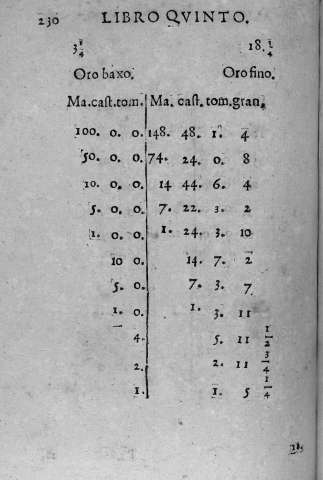 230 LIBRO QVINTO.
3 1/4 18. 1/4
Oro baxo. Oro fino.
Ma. cast. tom. Ma. cast. tom. gran.
100. 0. 0. 148. 48. 1. 4
50. 0. 0. 74. 24. 0. 8
10. 0. 0. 14 44. 6. 4
5. 0. 0. 7. 22. 3. 2
1. 0. 0. 1. 24. 3. 10
10 0. 14. 7. 2
5. 0. 7. 3. 7
1. 0. 1. 3. 11
4. 5. 11 1/2
2. 2. 11 3/4
1. 1. 5 1/4